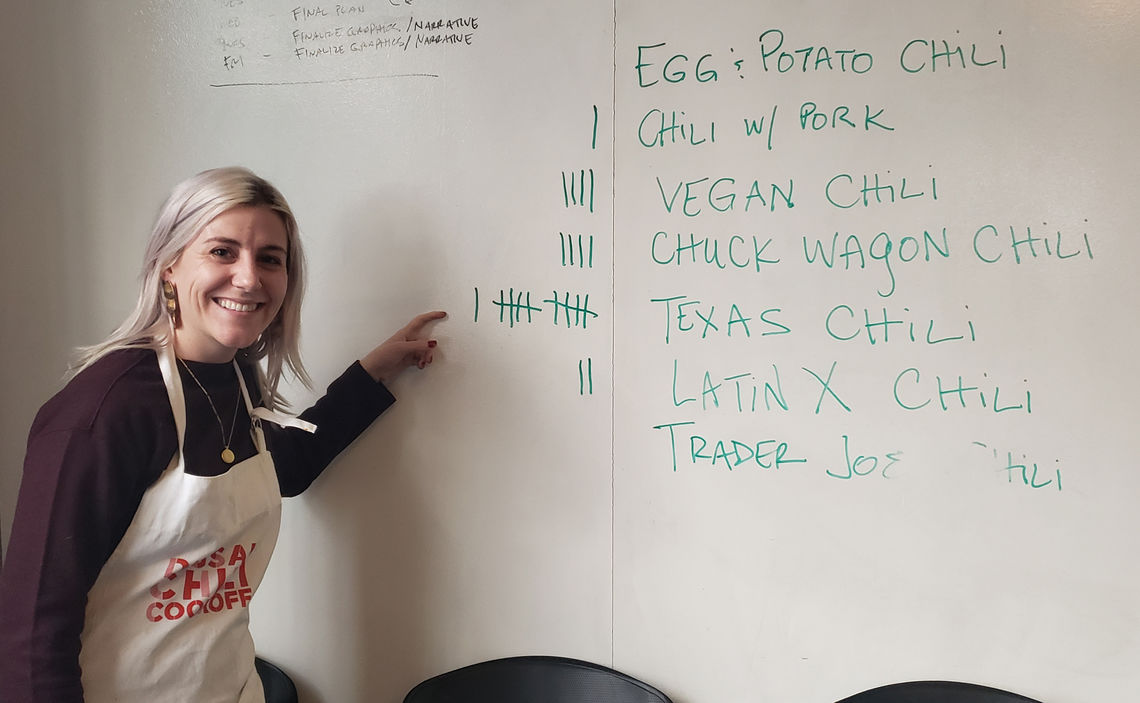 FINAL PLAN
FINALIZE GRAPHICS/NARRATIVE
FRI - FINALIZE GRAPHICS/NARRATIVE
EGG & POTATO CHILI
CHILI W/ PORK
VEGAN CHILI
CHUCK WAGON CHILI
TEXAS CHILI
LATIN X CHILI
TRADER JOE
CHILI
COOKOFF